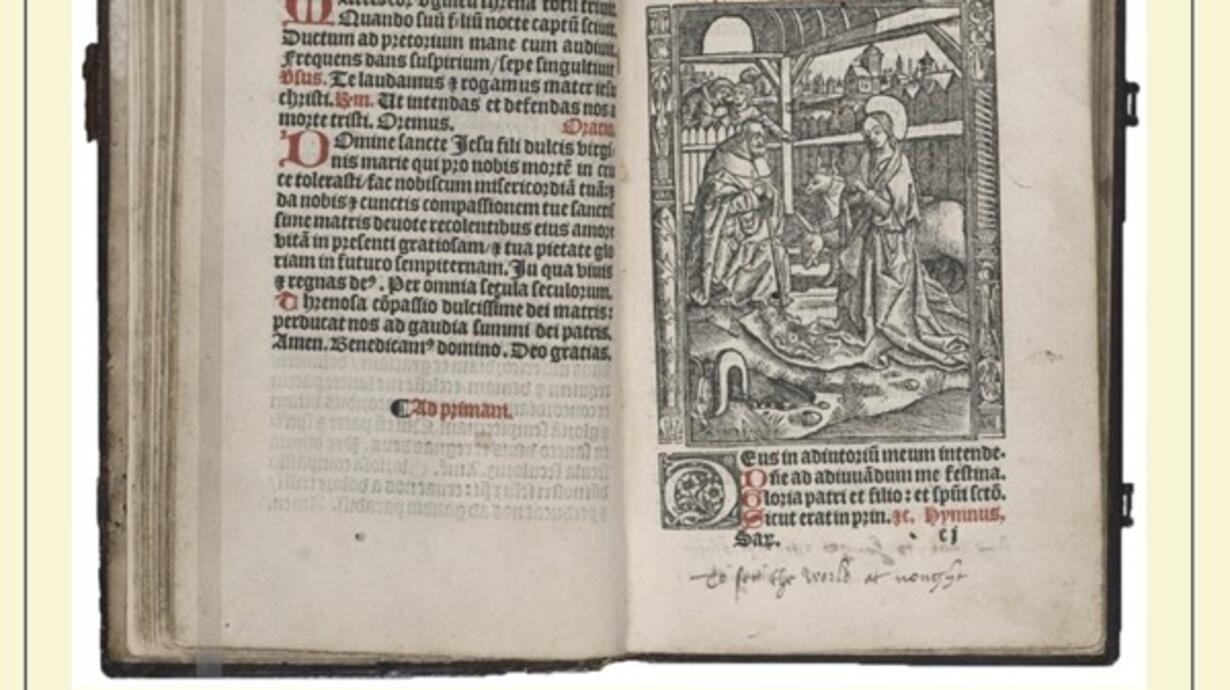 Quando suū filiū nocte captū sciuit.
Ductum ad pretorium mane cum audiuit.
Frequens dans suspirium/sepe singultiuit
Ꝟsus. Te laudamus ⁊ rogamus mater iesu
christi. Rem. Ut intendas et defendas nos a
morte tristi. Oremus. Oratio.
Domine sancte Jesu fili dulcis virgi
nis marie qui pro nobis mortē in cru
ce tolerasti/fac nobiscum misericordiā tuā:⁊
da nobis ⁊ cunctis compassionem tue sanctis
sime matris deuote recolentibus eius amore
vitā in presenti gratiosam/⁊ tua pietate glo
riam in futuro sempiternam. In qua viuis
⁊ regnas deꝰ. Per omnia secula seculorum.
Threnosa cōpassio dulcissime dei matris:
perducat nos ad gaudia summi dei patris.
Amen. Benedicamꝰ domino. Deo gratias.
¶Ad primam.
Deus in adiutoriū meum intende.
Dñe ad adiuuādum me festina.
Gloria patri et filio: et spūi sctō.
Sicut erat in prin. ⁊c. Hymnus.
Sar. c j
To set the world at nought